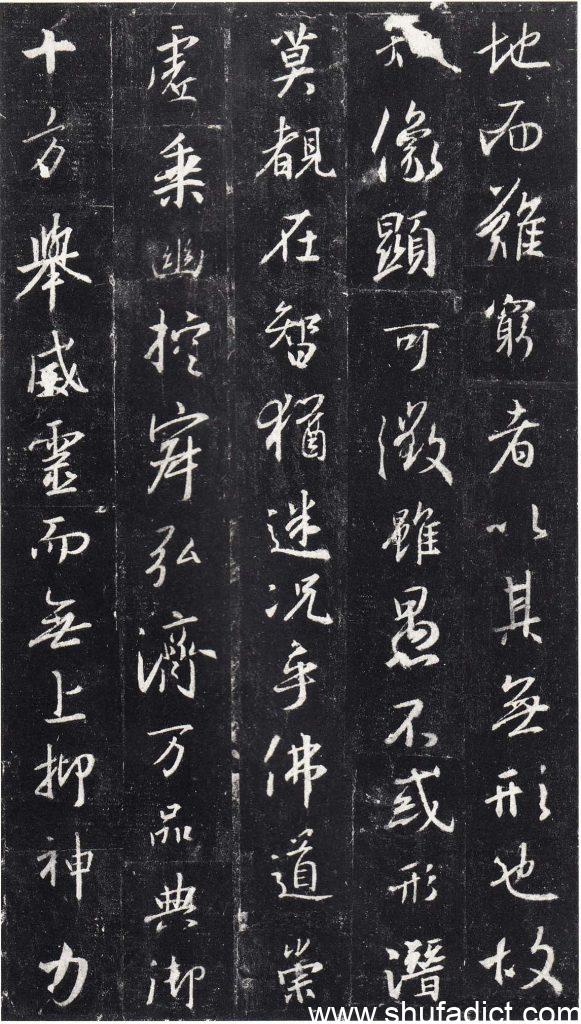 地而難窮者以其無形也故
像顯可徵雖愚不惑形潛
莫覩在智猶迷况乎佛道崇
虛乘幽控寂弘濟万品典御
十方舉威靈而無上抑神力
www.shufadict.com